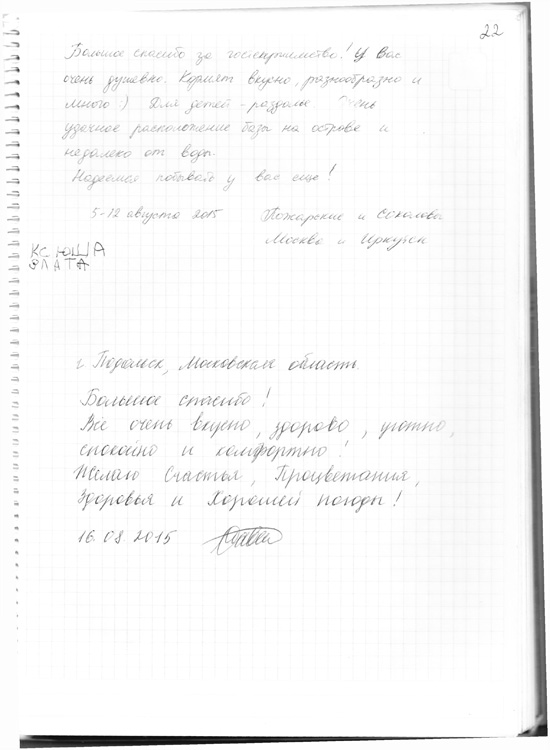 22
Большое спасибо за гостеприимство! У Вас
очень душевно. Кормят вкусно, разнообразно и
много :) Для детей - раздолье. Очень
удачное расположение базы на острове и
недалеко от воды.
Надеемся побывать у вас еще!
5-12 августа 2015 Пожарские и Соколовы
Москва и Иркутск
КСЮША
ЗЛАТА
г. Подольск, Московская область.
Большое спасибо!
Все очень вкусно, здорово, уютно,
спокойно и комфортно!
Желаю Счастья, Процветания,
Здоровья и Хорошей погоды!
16.08.2015